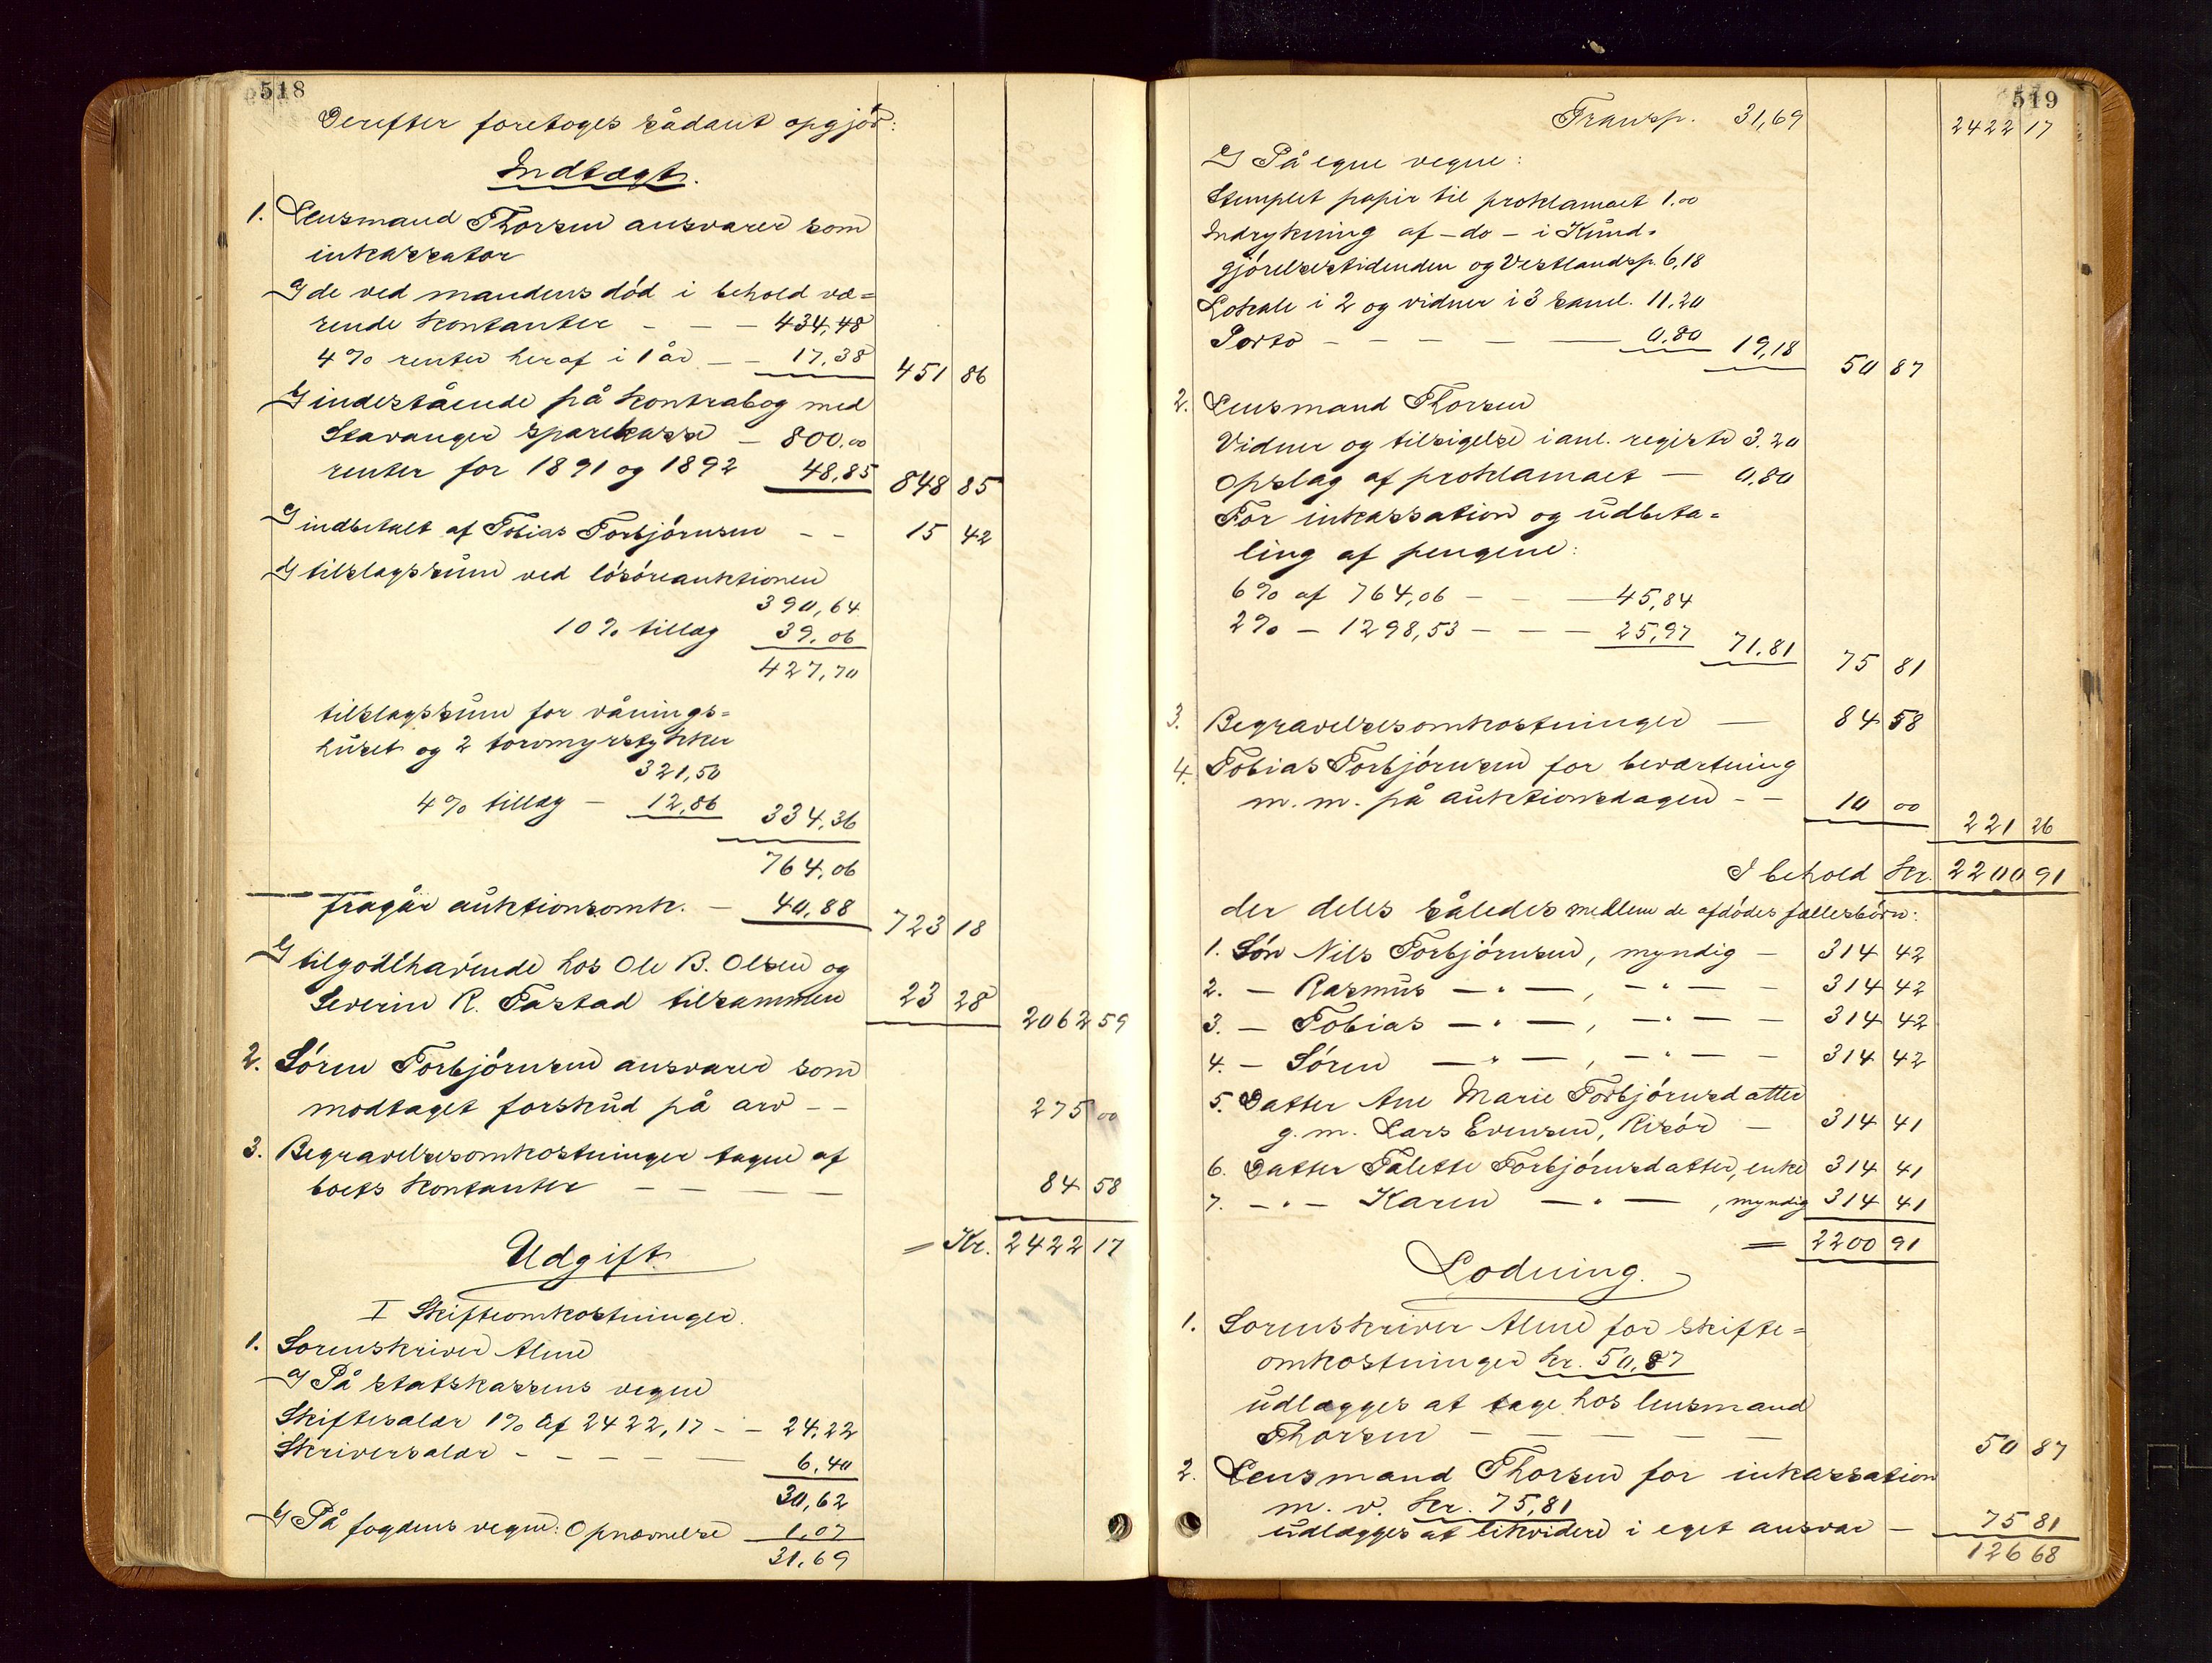 518
Derefter foretoges sådant opgjør:
Indtægt.
1. Lensmand Thorsen ansvarer som
inkassator
a) de ved mandens død i behold væ=
rende kontanter - - - 434,48
4 % renter heraf i 1 år - - 17.38 451 86
b) indestående på kontrabog med
Stavanger sparekasse - 800.00
renter for 1891 og 1892 48,85 848 85
c) indbetalt af Tobias Torbjørnsen - - 15 42
d) tilslagssum ved løsøreauktionen
390,64
10 % tillæg 39.06
427,70
tilslagssum for vånings=
huset og 2 torvmyrstykker
321,50
4 % tillæg - 12,86 334,36
764,06
fragår auktionsomk. - 40,88 723 18
e) tilgodehavende hos Ole B. Olsen og
Severin R. Tastad tilsammen 23 28 2062 59
2. Søren Torbjørnsen ansvarer som
modtaget forskud på arv - - 275 00
3. Begravelsesomkostninger tagne af
boets kontanter - - - - 84 58
= Kr. 2422 17
Udgift
I Skifteomkostninger.
1. Sorenskriver Alme
a) På statskassens vegne
Skiftesalær 1 % af 2422,17 - - 24,22
Skriversalær - - - - - 6,40
30,62
b) På fogdens vegne: Opnævnelse 1.07
31,69
519
Transp. 31,69 2422 17
c) På egne vegne:
Stemplet papir til proklamaet 1.00
Indrykning af - do - i Kund=
gjørelsestidenden og Vestlandsp. 6,18
Lokale i 2 og vidner i 3 saml. 11.20
Porto - - - - - 0,80 19,18 50 87
2. Lensmand Thorsen
Vidner og tilsigelse i anl. registr 3.20
Opslag af proklamaet - 0,80
For inkassation og udbeta=
ling af pengene:
6 % af 764,06 - - - 45,84
2 % - 1298,53 - - - 25,97 71.81 75 81
3. Begravelsesomkostninger - 84 58
4. Tobias Torbjørnsen for beværtning
m. m. på auktionsdagen - - 10 00 221 26
I behold Kr. 2200 91
der deles således mellem de afdødes fællesbørn:
1. Søn Nils Torbjørnsen, myndig - 314 42
2. - Rasmus - " -, - " - - 314 42
3. - Tobias - " -, - " - - 314 42
4. - Søren - " -, - " - - 314 42
5. Datter Ane Marie Torbjørnsdatter
g. m. Lars Evensen, Risør - 314 41
6. Datter Talette Torbjørnsdatter, enke 314 41
7. - " - Karen - " -, myndig 314 41
= 2200 91
Lodning.
1. Sorenskriver Alme for skifte=
omkostninger kr. 50,87
udlægges at tage hos lensmand
Thorsen - - - - - 50 87
2. Lensmand Thorsen for inkassation
m. v. kr. 75,81
udlægges at likvidere i eget ansvar - 75 81
126 68